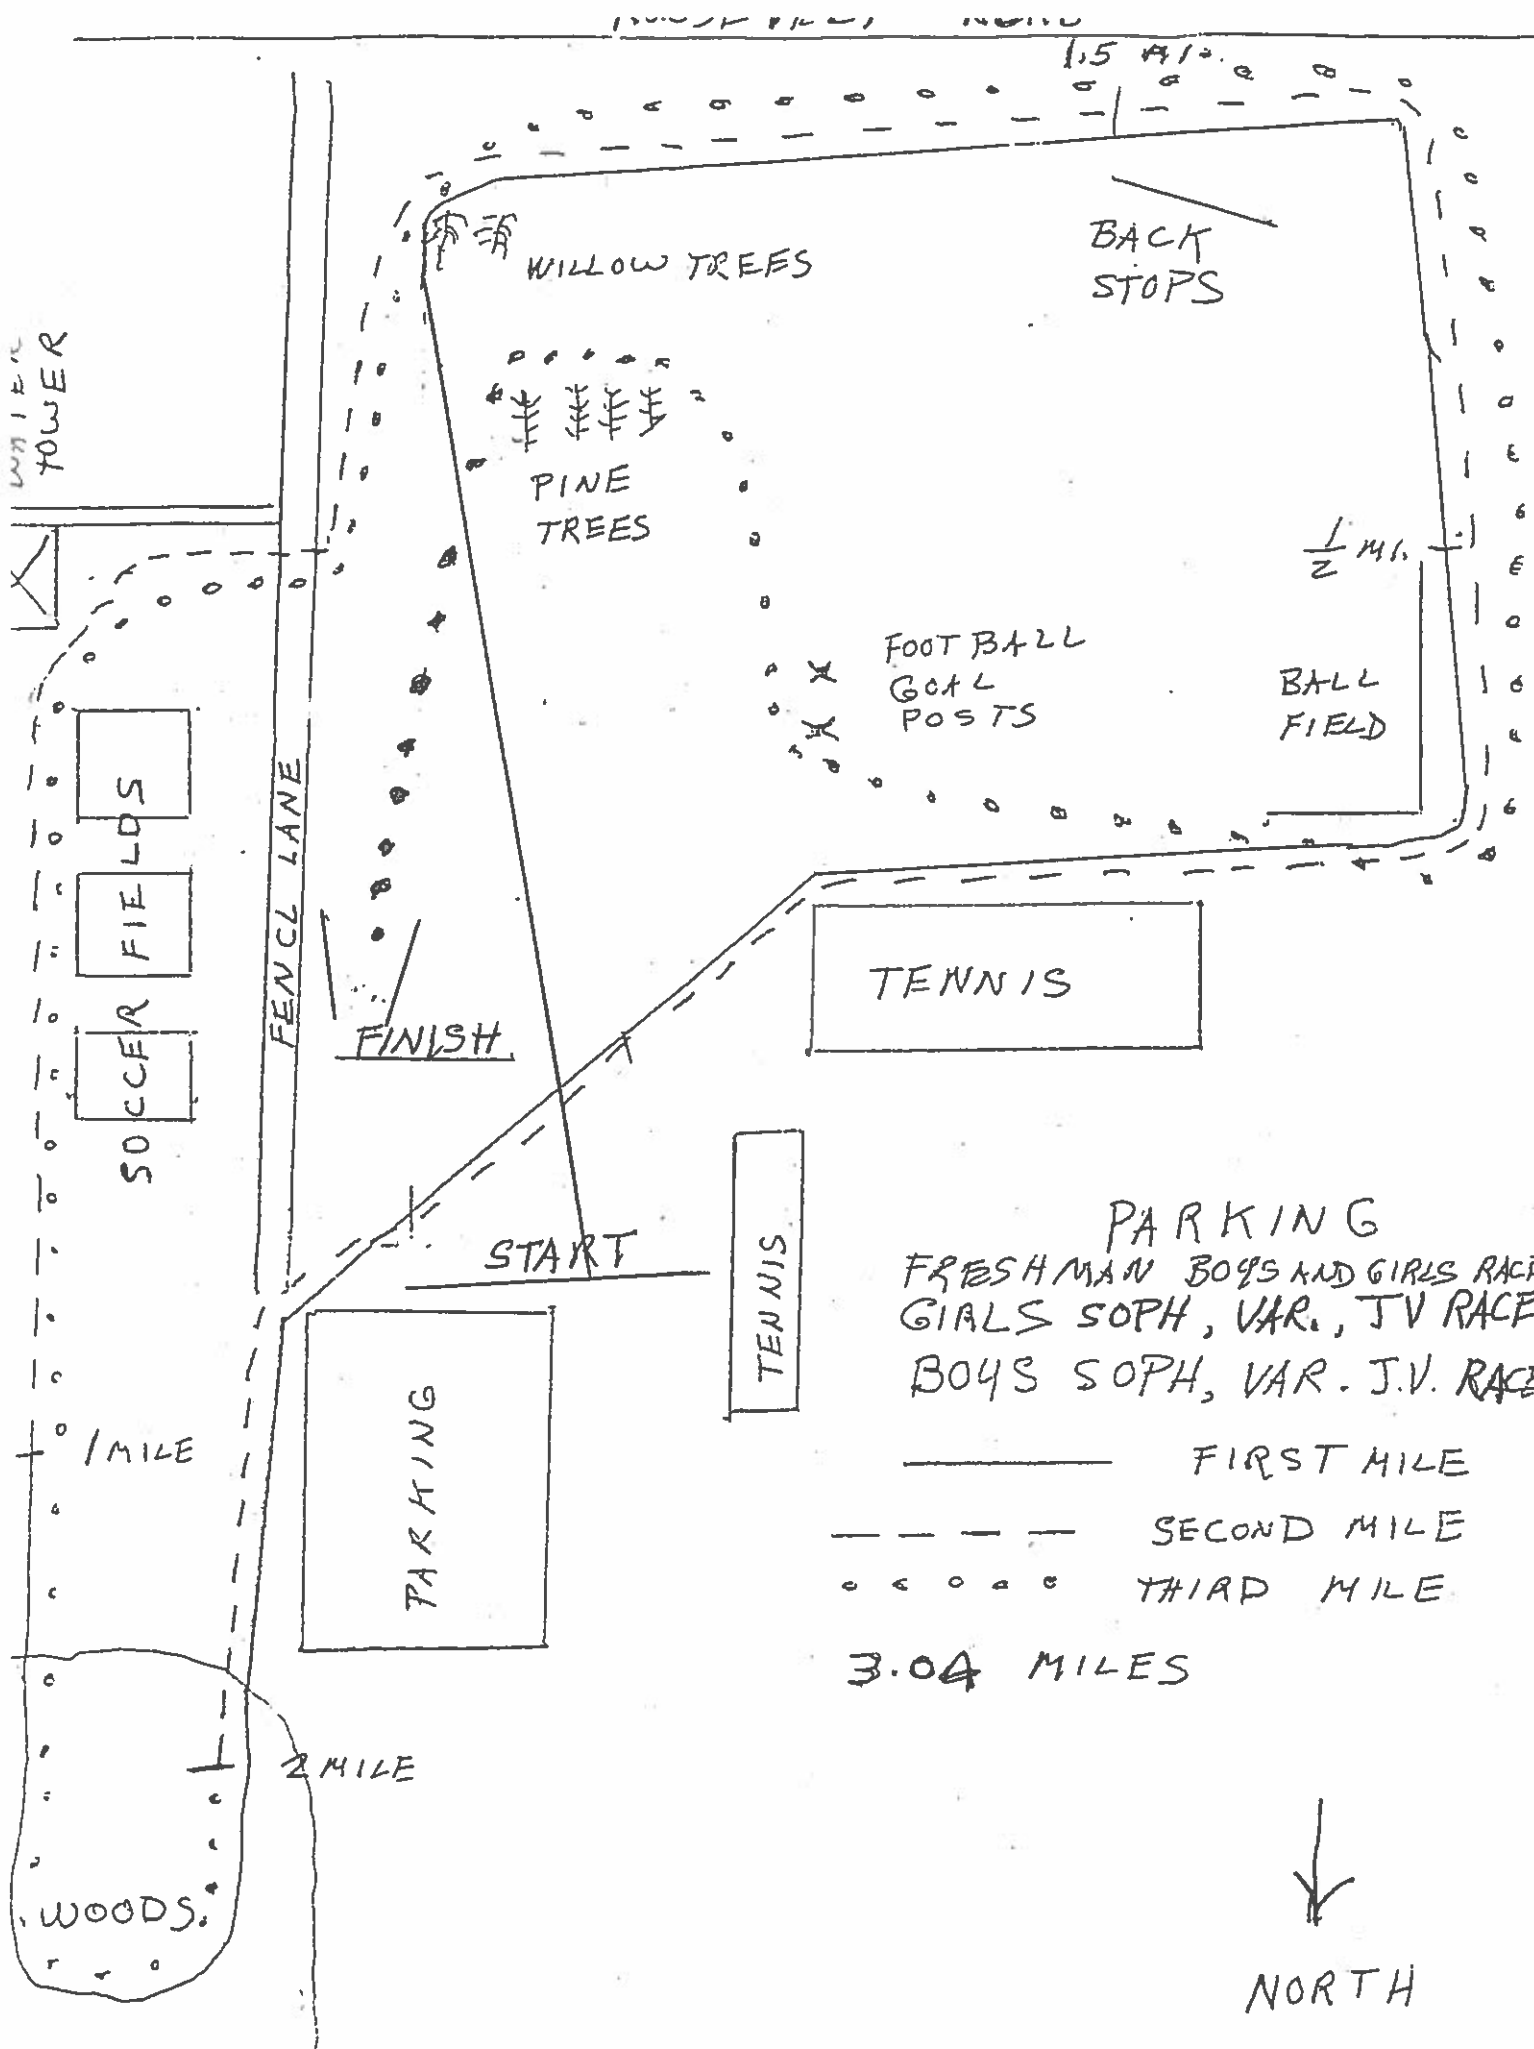 1.5 MI.
WILLOW TREES
BACK
STOPS
TOWER
PINE
TREES
1/2 MI.
FOOTBALL
GOAL
POSTS
BALL
FIELD
SOCCER FIELDS
FENCL LANE
FINISH
TENNIS
START
TENNIS
PARKING
FRESHMAN BOYS AND GIRLS RACE
GIRLS SOPH, VAR., JV RACE
BOYS SOPH, VAR. J.V. RACE
1 MILE
PARKING
FIRST MILE
SECOND MILE
THIRD MILE
3.04 MILES
2 MILE
WOODS
NORTH